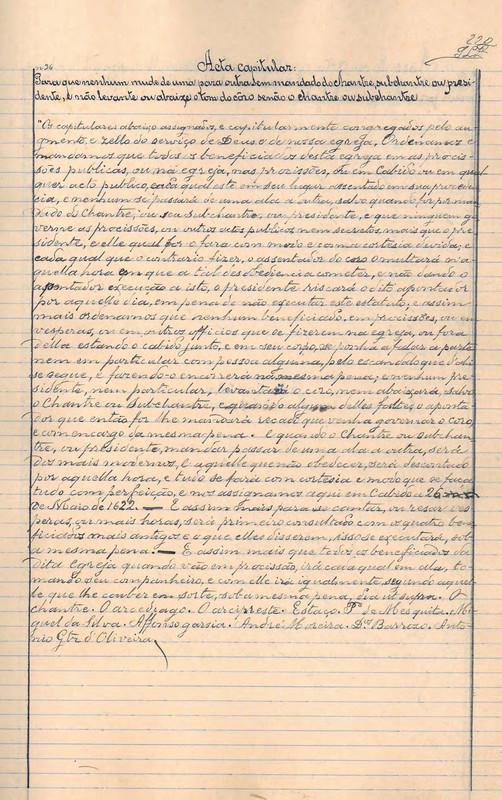 220
nº36
Acta capitular:
Para que nenhum mude de uma para outra sem mandado do chantre, subchantre ou presi-
dente, e não levante ou abaixe o tom do côro senão o chantre ou subchantre
"Os capitulares abaixo assignados, e capitularmente congregados pelo au-
gmento, e zello do serviço de Deus e de nossa egreja, Ordenamos e
mandamos que todos os beneficiados desta egreja em as procis-
sões publicas, ou na egreja, nas procissões, ou em Cabido ou em qual
quer acto publico, cada qual esté em seu lugar assentado em sua preceden-
cia, e nenhum se passará de uma ala a outra, salvo quando for por man
dado do Chantre, ou seu Subchantre, ou presidente, e que ninguem go
verne as procissões, ou outros actos publicos nem secretos mais que o pre
sidente, e elle qual for o fará com modo e com a cortesia devida, e
cada qual que o contrario fizer, o assentador do coro o multará n'a
quella hora em que a tal desobediencia cometer, e não dando o
apontador execução a isto, o presidente riscará o dito apontador
por aquelle dia, em pena de não executar este estatuto, e assim
mais ordenamos que nenhum beneficiado, em procissões, ou em
vesporas, ou em outros officios que se fizerem na egreja, ou fora
d'ella estando o cabido junto, e em seu corpo, se ponha a fallar a parte
nem em particular com pessoa alguma, pelo escandalo que d'ahi
se segue, e fazendo-o encorrerá na mesma pena, e nenhum pre
sidente, nem particular, levantará o coro, nem abaixará, salvo
o Chantre ou Subchantre, e quando algum delles faltar o aponta
dor que então for lhe mandará recado que venha governar o coro,
e com encargo da mesma pena. E quando o Chantre ou subchan
tre, ou presidente, mandar passar de uma ala a outra, será
dos mais modernos, e aquelle que não obedecer, será descontado
por aquella hora, e tudo se fará com cortesia e modo que se faça
tudo com perfeição, e nos assignamos aqui em Cabido a 26
de Maio de 1622. — E assim mais para se cantar, ou resar ves
peras, ou mais horas, será primeiro consultado com os quatro bene
ficiados mais antigos e o que elles disserem, isso se executará, sob
a mesma pena. — E assim mais que todos os beneficiados da
dita Egreja quando vão em procissão, irá cada qual em ala, to-
mando seu companheiro, e com elle irá igualmente, segundo aquel
le que lhe couber em sorte, sob a mesma pena, dia ut supra. O
chantre. O arcediago. O arcipreste. Estaço. Pº de Mesquita. Mi-
guel da Silva. Affonso garsia. André Moreira. Dºs Barrozo. Anto-
nio Glz d'Oliveira